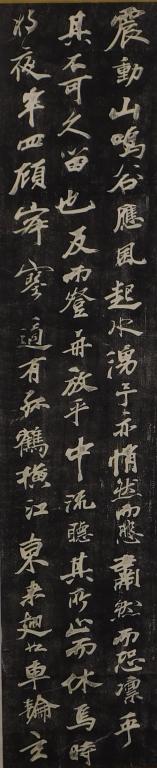 震動山鳴谷應風起水湧予亦悄然而悲肅然而恐凛乎
其不可久留也反而登舟放乎中流聽其所止而休焉時
將夜半四顧寂寥適有孤鶴橫江東來翅如車輪玄